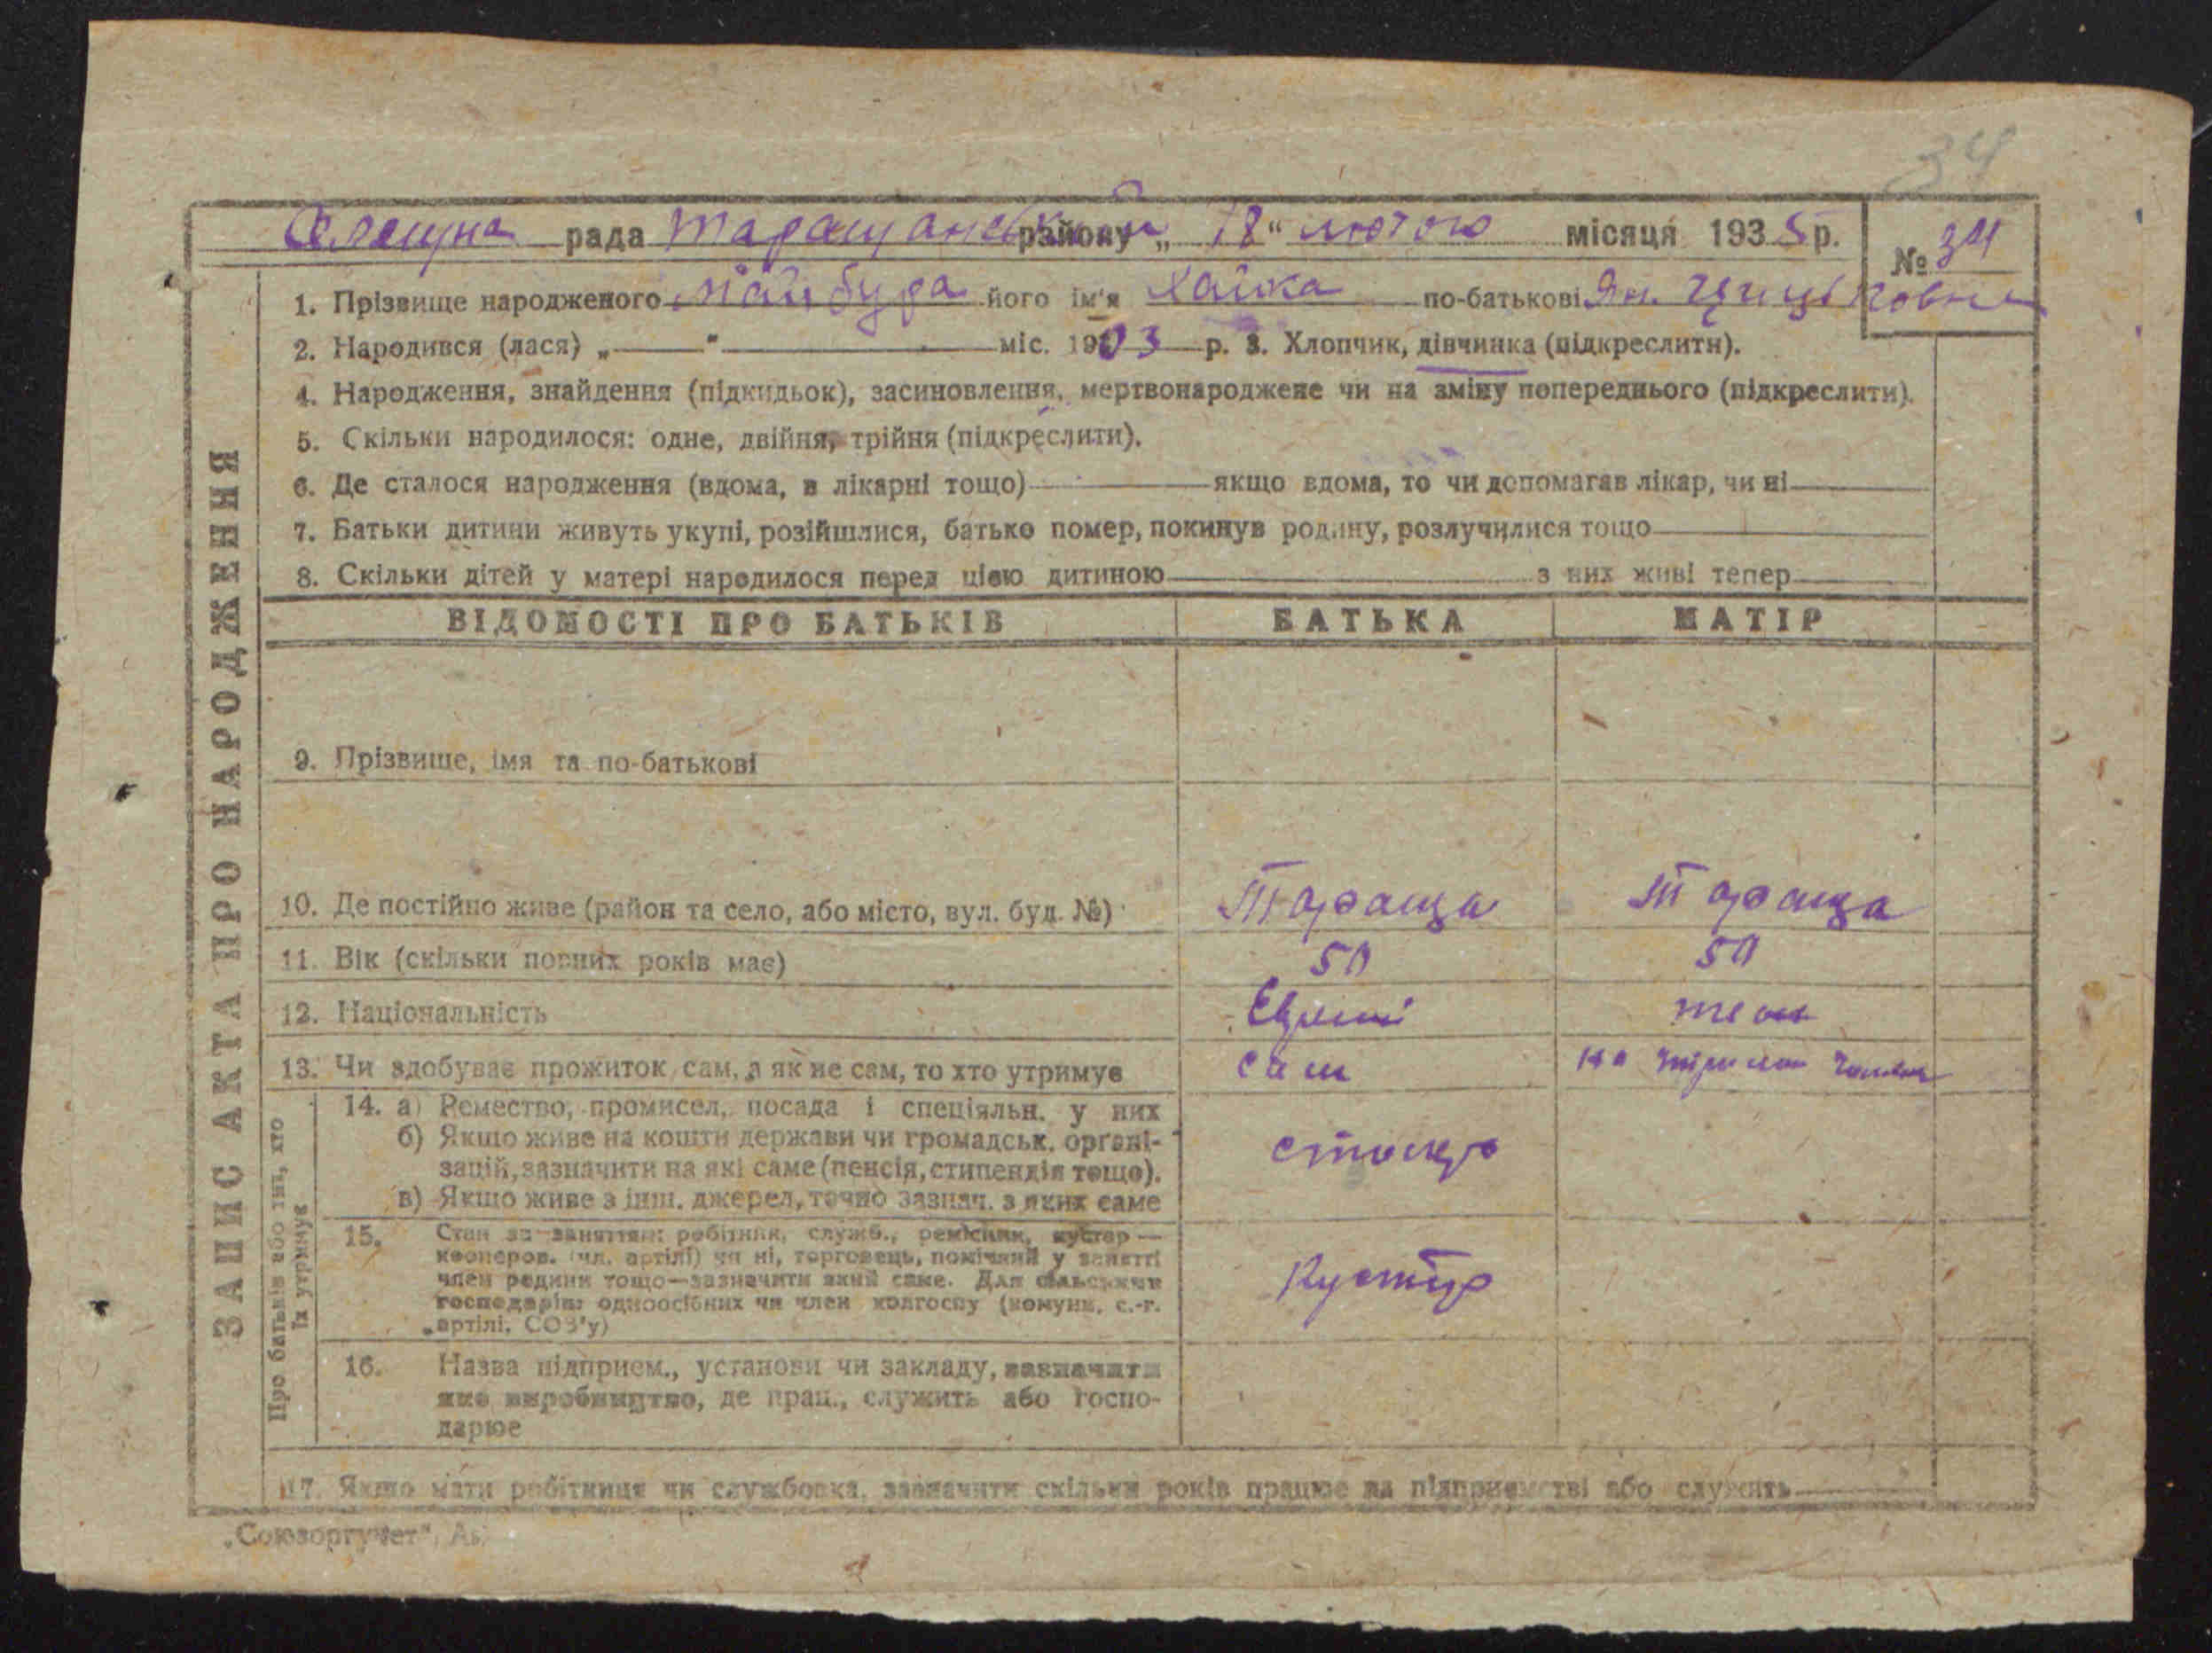 34
Селищна рада Таращанський району „18“ лютого місяця 1935 р. № 34
1. Прізвище народженого Майбуда його ім'я Хайка по-батькові
2. Народився (лася) „ “ міс. 1903 р. 3. Хлопчик, дівчинка (підкреслити).
4. Народження, знайдення (підкидьок), засиновлення, мертвонароджене чи на зміну попереднього (підкреслити).
5. Скільки народилося: одне, двійня, трійня (підкреслити).
6. Де сталося народження (вдома, в лікарні тощо) якщо вдома, то чи допомагав лікар, чи ні
7. Батьки дитини живуть укупі, розійшлися, батько помер, покинув родину, розлучилися тощо
8. Скільки дітей у матері народилося перед цією дитиною з них живі тепер
ВІДОМОСТІ ПРО БАТЬКІВ БАТЬКА МАТІР
9. Прізвище, імя та по-батькові
10. Де постійно живе (район та село, або місто, вул. буд. №) Тараща Тараща
11. Вік (скільки повних років має) 50 50
12. Національність Євреї теж
13. Чи здобуває прожиток сам, а як не сам, то хто утримує сам на
14. а) Ремество, промисел, посада і спеціяльн. у них
б) Якщо живе на кошти держави чи громадськ. органі-
зацій, зазначити на які саме (пенсія, стипендія тощо).
в) Якщо живе з інш. джерел, точно зазнач. з яких саме
столяр
15. Стан за заняттям: робітник, служб., ремісник, кустар —
кооперов. (чл. артілі) чи ні, торговець, помічний у занятті
член родини тощо—зазначити який саме. Для сільських
господарів: одноосібних чи член колгоспу (комуни, с.-г.
артілі, СОЗ'у)
Кустар
16. Назва підприєм., установи чи закладу, зазначити
яке виробництво, де прац., служить або госпо-
дарює
17. Якщо мати робітниця чи службовка, зазначити скільки років працює на підприємстві або служить
ЗАПИС АКТА ПРО НАРОДЖЕННЯ
Про батьків або тих, хто
їх утримує
„Союзоргучет“,